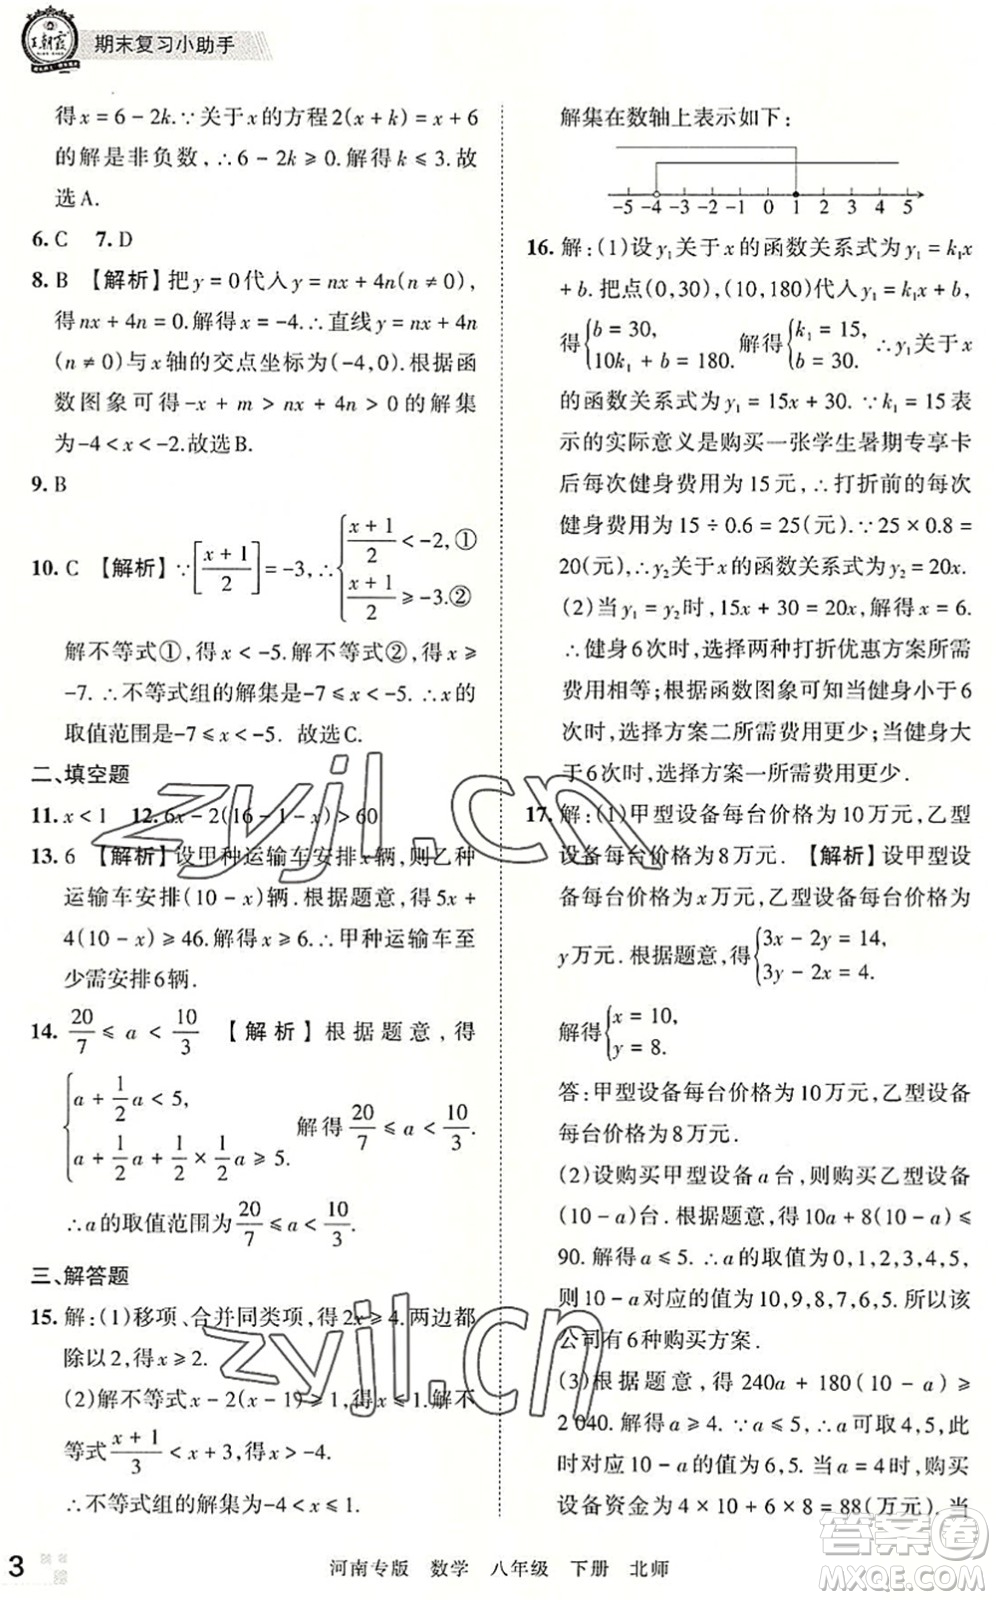 王朝霞
期末复习小助手
得x=6-2k.∵关于x的方程2(x+k)=x+6
的解是非负数,∴6-2k≥0.解得k≤3.故
选A.
6. C 7. D
8. B 【解析】把y=0代入y=nx+4n(n≠0),
得nx+4n=0.解得x=-4.∴直线y=nx+4n
(n≠0)与x轴的交点坐标为(-4,0).根据函
数图象可得-x+m>nx+4n>0的解集
为-4<x<-2.故选B.
9. B
10. C 【解析】∵[(x+1)/2]=-3,∴{(x+1)/2<-2,①
(x+1)/2≥-3.②
解不等式①,得x<-5.解不等式②,得x≥
-7.∴不等式组的解集是-7≤x<-5.∴x的
取值范围是-7≤x<-5. 故选C.
二、填空题
11. x<1 12. 6x-2(16-1-x)>60
13. 6 【解析】设甲种运输车安排x辆,则乙种
运输车安排(10-x)辆.根据题意,得5x+
4(10-x)≥46.解得x≥6.∴甲种运输车至
少需安排6辆.
14. 20/7≤a<10/3 【解析】根据题意,得
{a+1/2a<5,
a+1/2a+1/2×1/2a≥5. 解得20/7≤a<10/3.
∴a的取值范围为20/7≤a<10/3.
三、解答题
15. 解:(1)移项、合并同类项,得2x≥4.两边都
除以2,得x≥2.
(2)解不等式x-2(x-1)≥1,得x≤1.解不
等式(x+1)/3<x+3,得x>-4.
∴不等式组的解集为-4<x≤1.
解集在数轴上表示如下:
-5 -4 -3 -2 -1 0 1 2 3 4 5
16. 解:(1)设y₁关于x的函数关系式为y₁=k₁x
+b.把点(0,30),(10,180)代入y₁=k₁x+b,
得{b=30,
10k₁+b=180. 解得{k₁=15,
b=30. ∴y₁关于x
的函数关系式为y₁=15x+30.∵k₁=15表
示的实际意义是购买一张学生暑期专享卡
后每次健身费用为15元,∴打折前的每次
健身费用为15÷0.6=25(元).∵25×0.8=
20(元),∴y₂关于x的函数关系式为y₂=20x.
(2)当y₁=y₂时,15x+30=20x,解得x=6.
∴健身6次时,选择两种打折优惠方案费用
一样;根据函数图象可知,当健身小于6
次时,选择方案二所需费用更少;当健身大
于6次时,选择方案一所需费用更少.
17. 解:(1)甲型设备每台价格为10万元,乙型
设备每台价格为8万元. 【解析】设甲型设
备每台价格为x万元,乙型设备每台价格为
y万元.根据题意,得{3x-2y=14,
3y-2x=4.
解得{x=10,
y=8.
答:甲型设备每台价格为10万元,乙型设备
每台价格为8万元.
(2)设购买甲型设备a台,则购买乙型设备
(10-a)台.根据题意,得10a+8(10-a)≤
90.解得a≤5.∴a的取值为0,1,2,3,4,5.
则10-a对应的值为10,9,8,7,6,5.所以该
公司有6种购买方案.
(3)根据题意,得240a+180(10-a)≥
2 040.解得a≥4.∵a≤5,∴a可取4,5,此
时对应的10-a的值为6,5.当a=4时,购买
设备资金为4×10+6×8=88(万元).当
3
河南专版 数学 八年级 下册 北师
zyjl.cn
zyjl.cn
答案圈
MXQE.COM